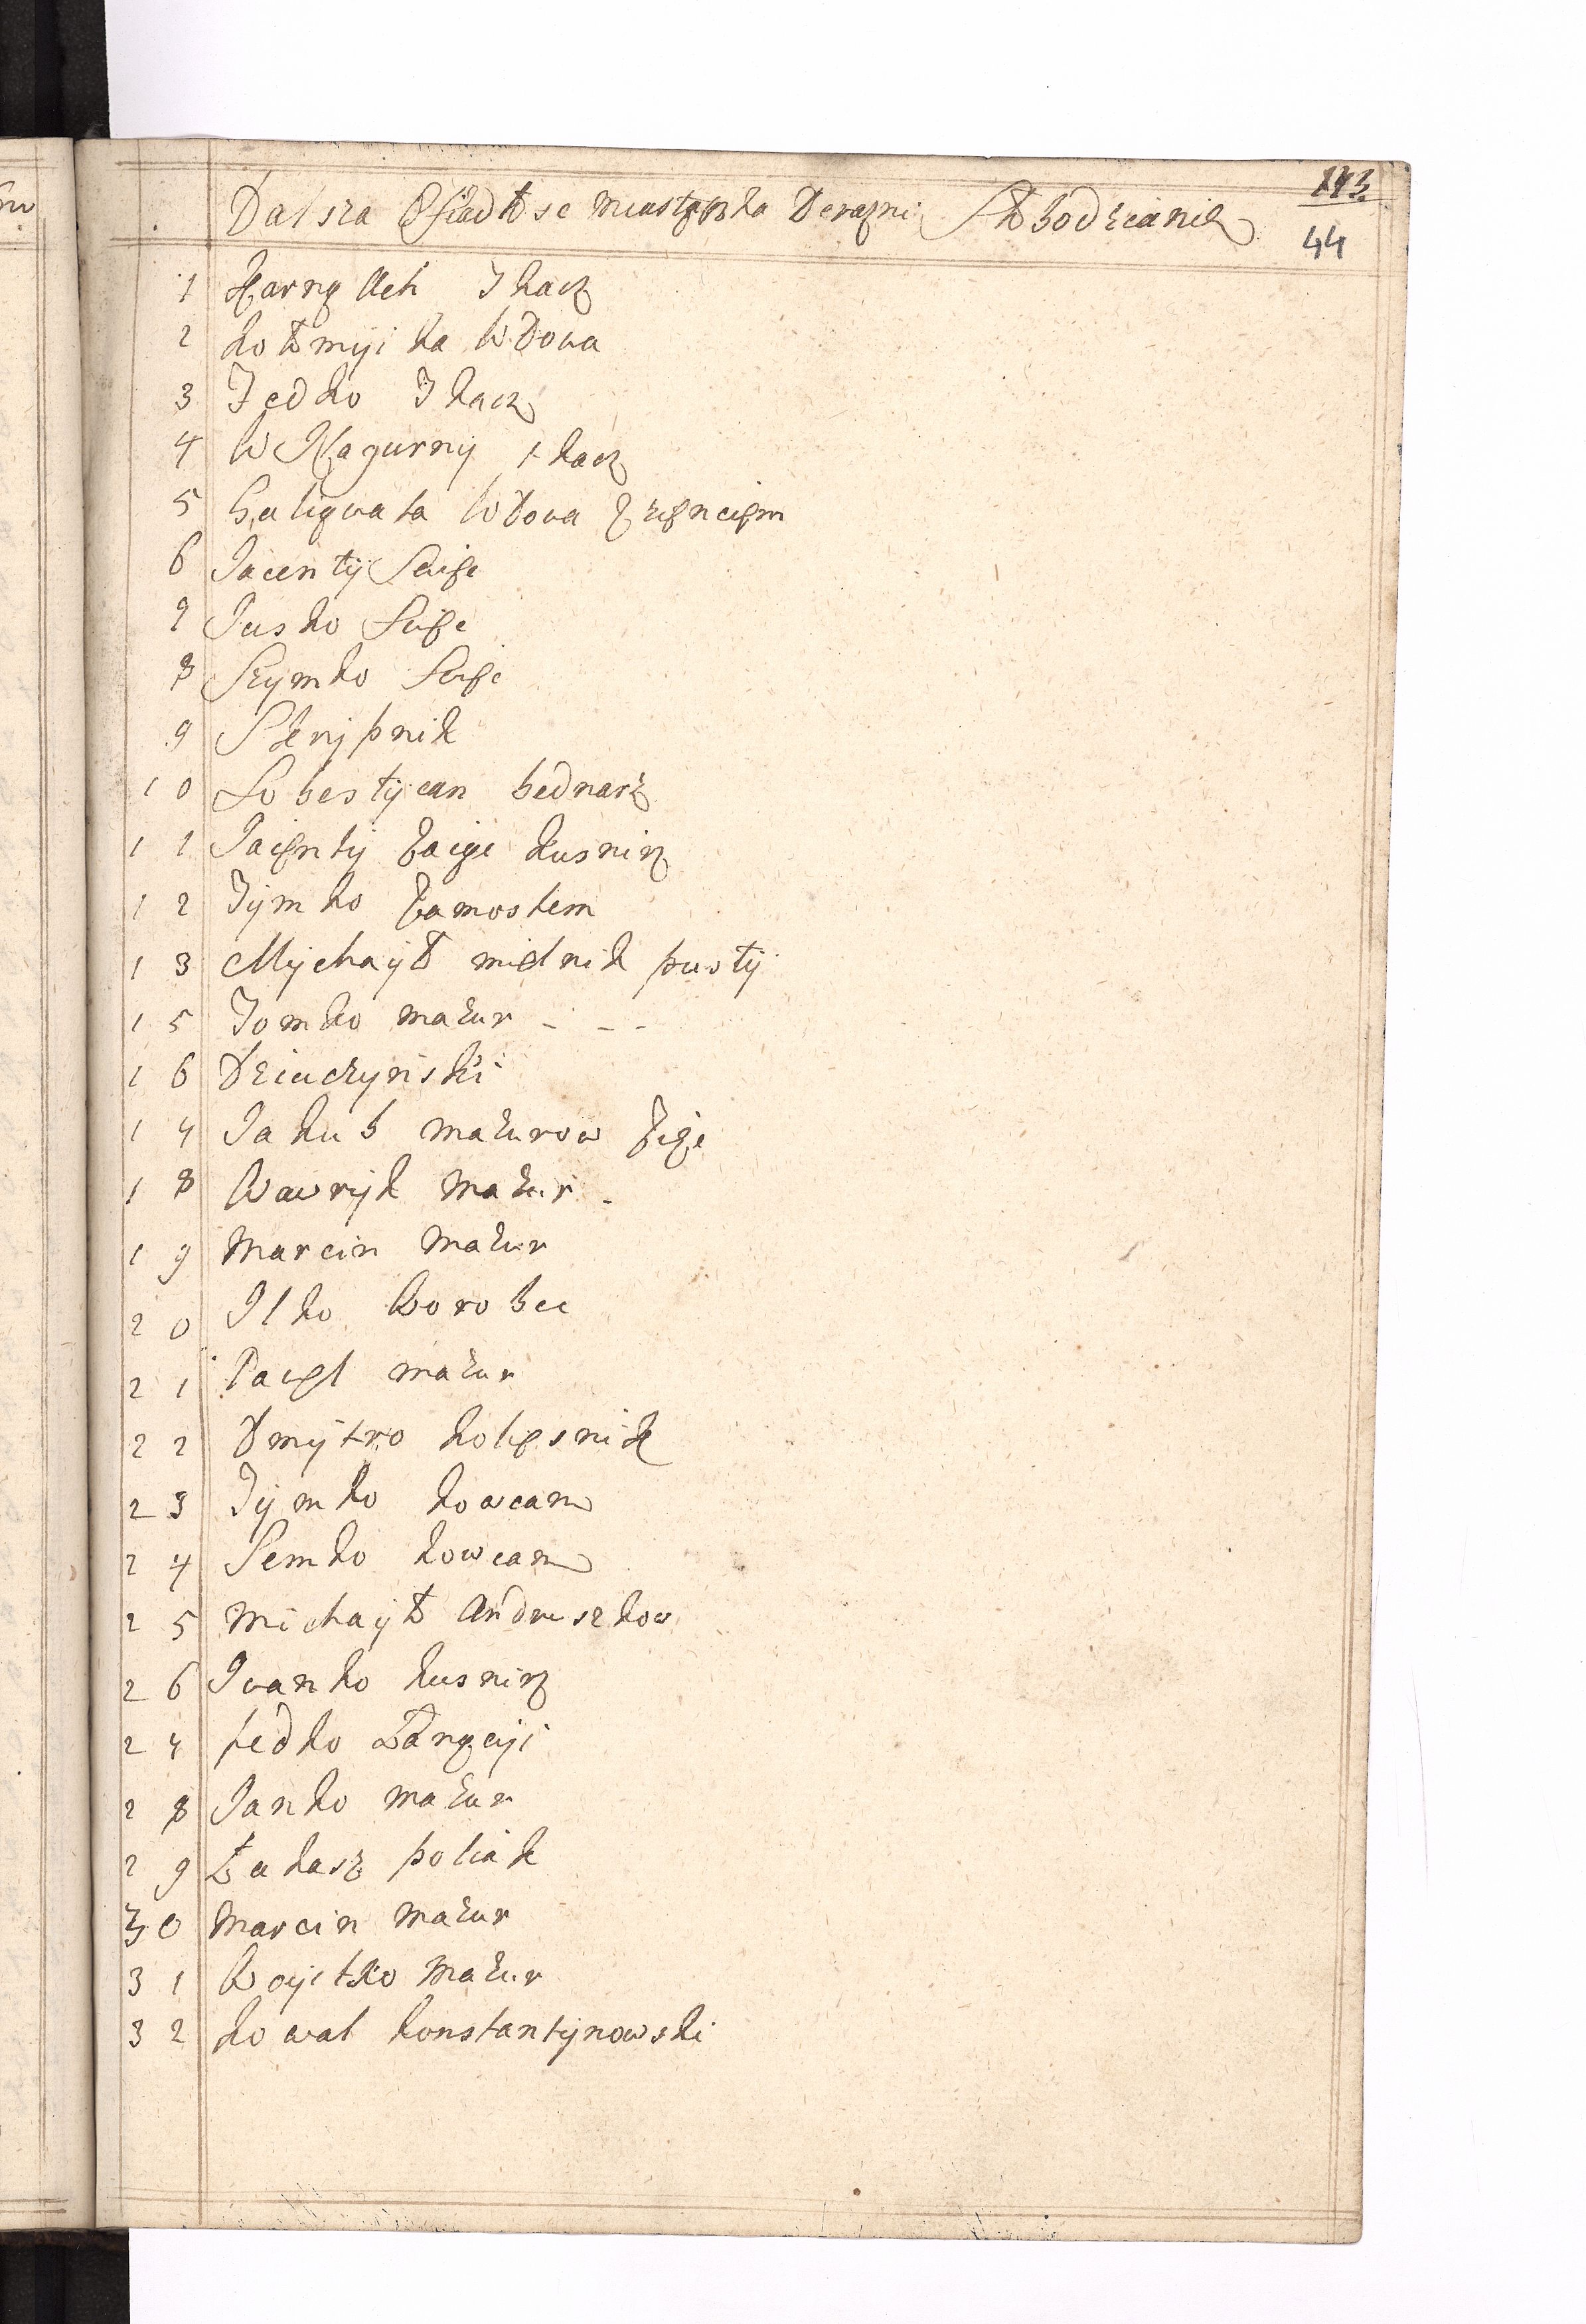 Dalsza Osiadłsc miasteczka Derazni Słobodzianie
113
44
1 Harnguch Tkacz
2 kołmyika Wdowa
3 Fedko Tkacz
4 W Nagurny tkacz
5 haliewata Wdowa Zzieńciem
6 Jacenty Scibe
7 Jusko Scibe
8 Szymko Scibe
9 Skrypnik
10 Sobestyian bednarz
11 Jacenty kusnirz
12 Tymko Zamostem
13 Mychaył mielnik pusty
15 Tomko mazur - - -
16 Dziuczynski
17 Jakub mazurow Zięć
18 Wawryk Mazur -
19 Marcin Mazur
20 Ilko Worobec
21 Pawel mazur
22 Dmytro koliesnik
23 Tymko kowcan
24 Semko kowcan
25 Michayło Andruszkow
26 Iwanko kusnirz
27 fedko
28 Janko mazur
29 Łukasz poliak
30 Marcin mazur
31 Woyitko Mazur
32 kowal konstantynowski